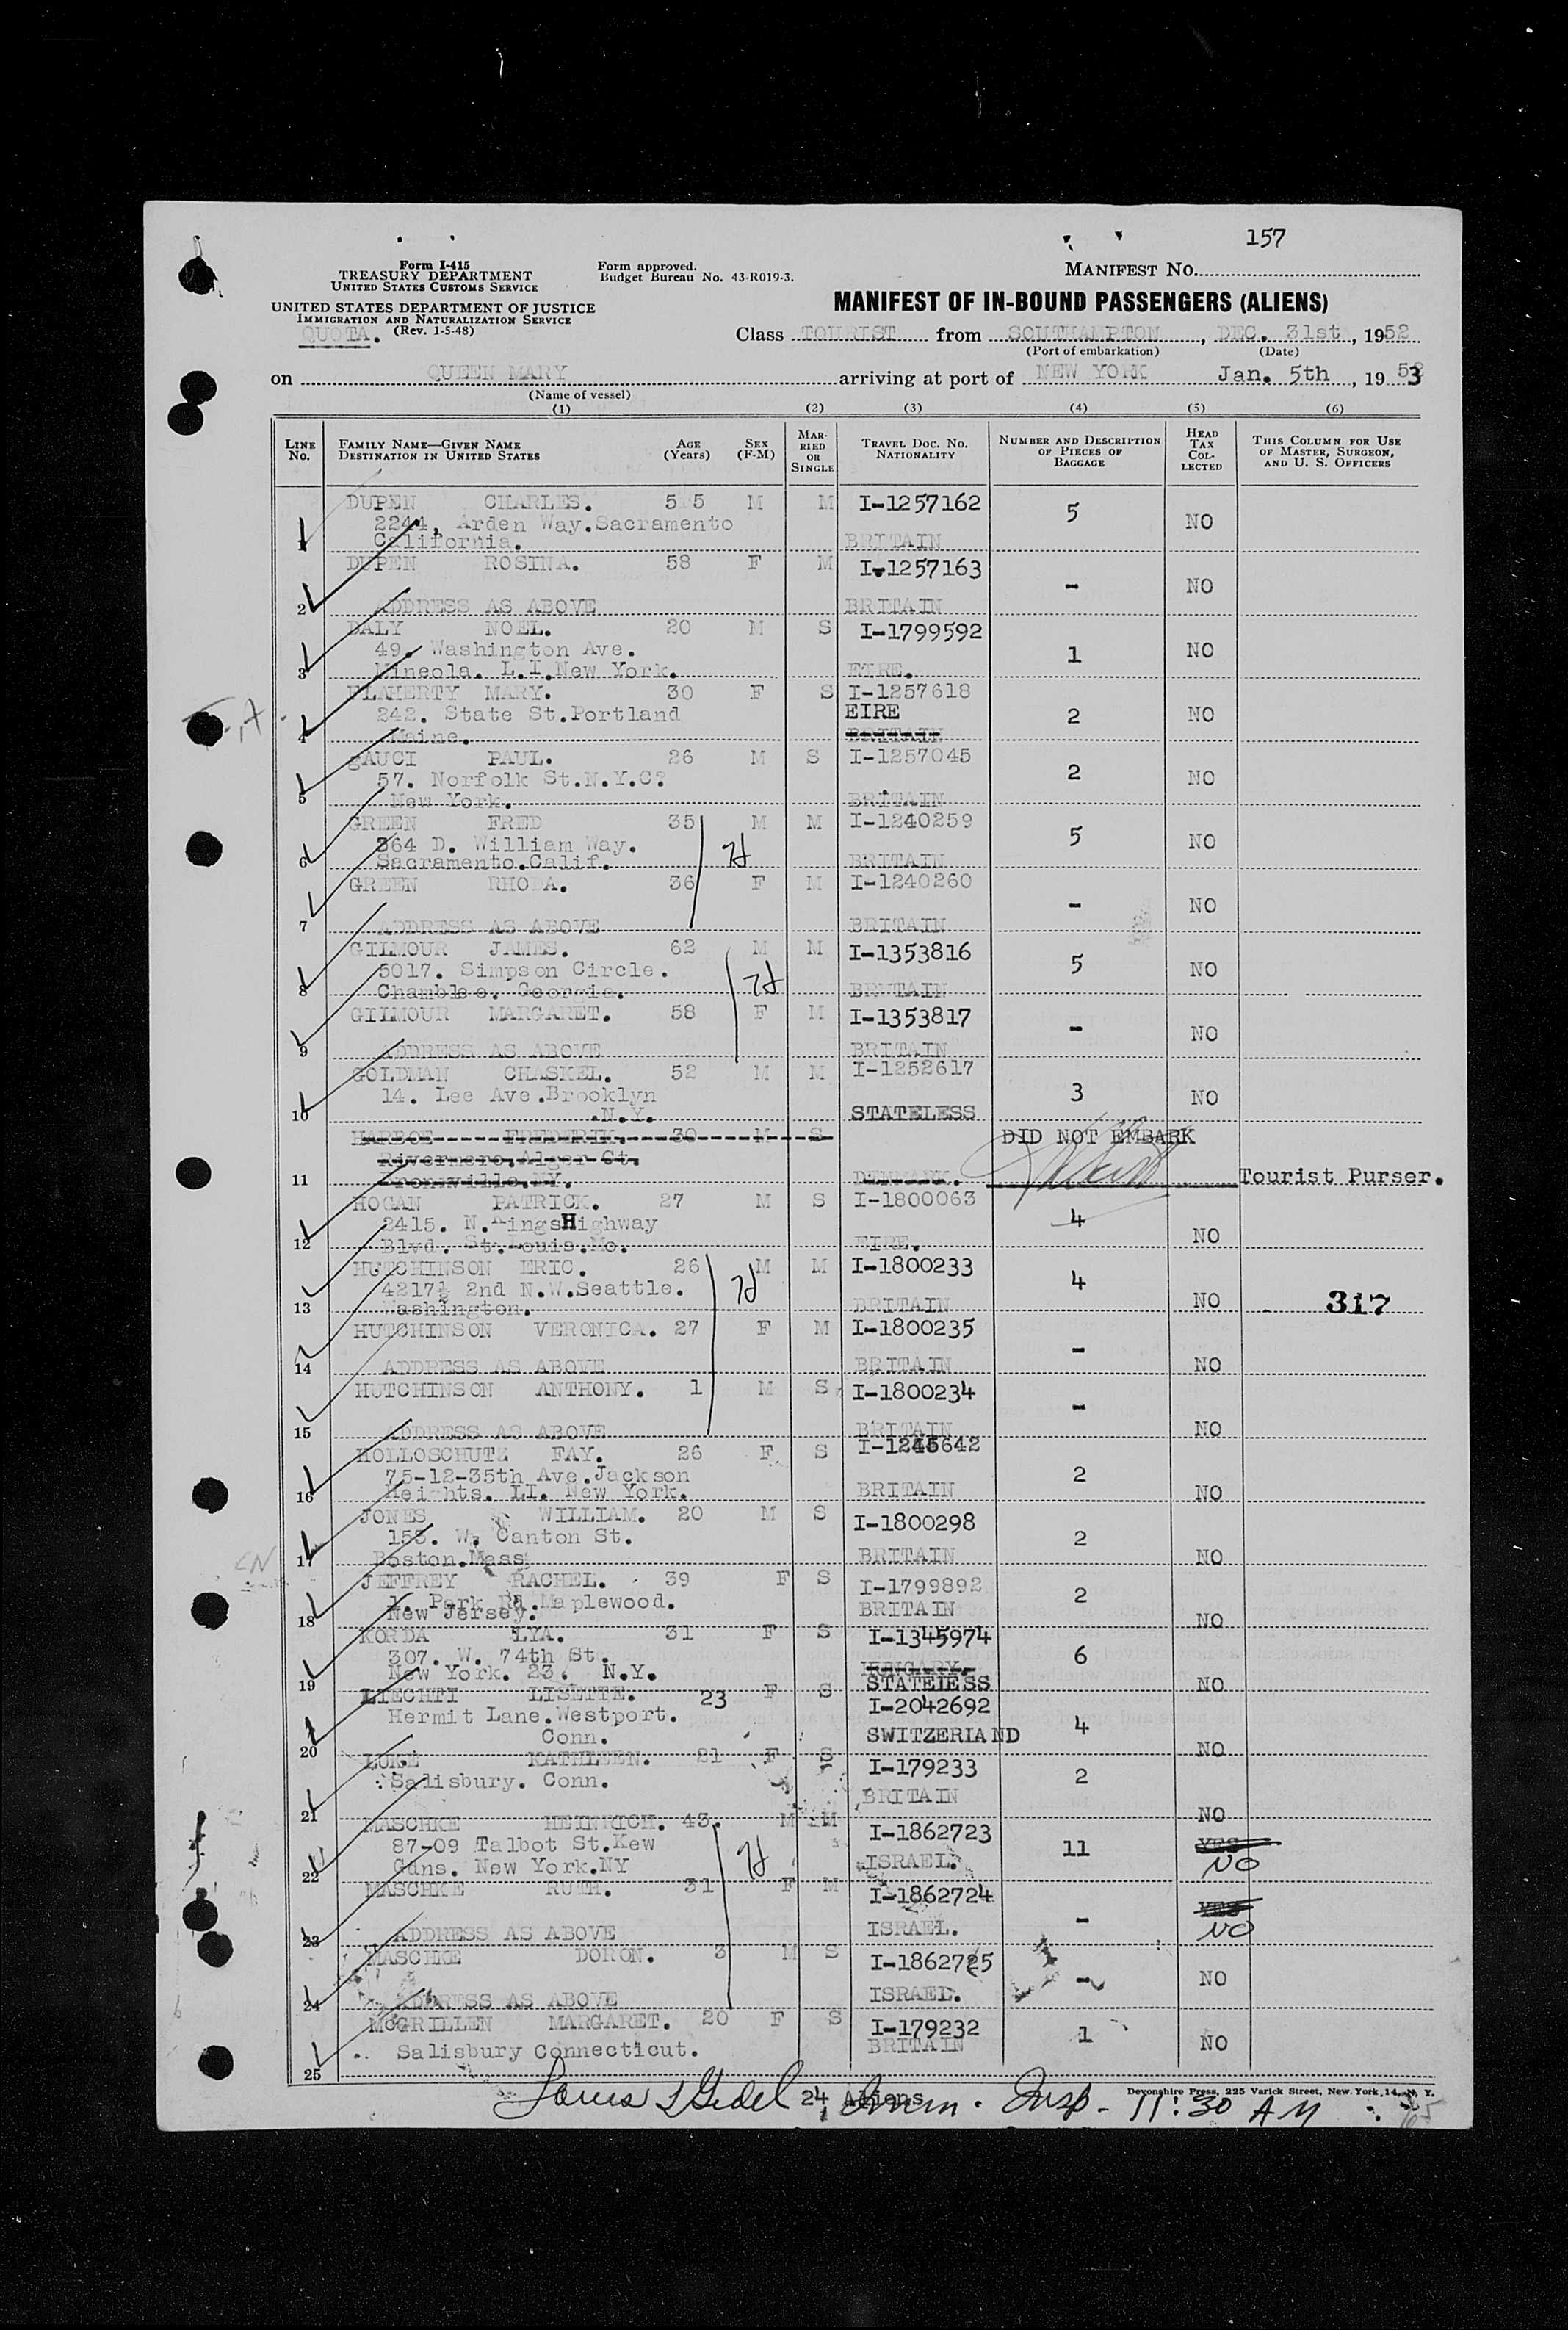 157
Form I-415
TREASURY DEPARTMENT
UNITED STATES CUSTOMS SERVICE
Form approved.
Budget Bureau No. 43-R019-3.
MANIFEST NO.
UNITED STATES DEPARTMENT OF JUSTICE
IMMIGRATION AND NATURALIZATION SERVICE
(Rev. 1-5-48)
QUOTA.
MANIFEST OF IN-BOUND PASSENGERS (ALIENS)
Class TOURIST from SOUTHAMPTON, DEC. 31st, 1952
(Port of embarkation) (Date)
on QUEEN MARY arriving at port of NEW YORK Jan. 5th, 1953
(Name of vessel)
(1) (2) (3) (4) (5) (6)
LINE No. FAMILY NAME—GIVEN NAME DESTINATION IN UNITED STATES AGE (Years) SEX (F-M) MARRIED OR SINGLE TRAVEL DOC. NO. NATIONALITY NUMBER AND DESCRIPTION OF PIECES OF BAGGAGE HEAD TAX COLLECTED THIS COLUMN FOR USE OF MASTER, SURGEON, AND U. S. OFFICERS
DUPEN CHARLES. 5 5 M M I-1257162 5 NO
2244, Arden Way.Sacramento
1 California. BRITAIN
DUPEN ROSINA. 58 F M I-1257163 - NO
2 ADDRESS AS ABOVE BRITAIN
DALY NOEL. 20 M S I-1799592 1 NO
49. Washington Ave.
3 Mineola. L.I.New York. EIRE.
FLAHERTY MARY. 30 F S I-1257618
242. State St.Portland EIRE 2 NO
4 Maine. BRITAIN
gAUCI PAUL. 26 M S I-1257045 2 NO
57. Norfolk St.N.Y.C?
5 New York. BRITAIN
GREEN FRED 35 M M I-1240259 5 NO
364 D. William Way.
6 Sacramento.Calif. BRITAIN
GREEN RHODA. 36 F M I-1240260 - NO
7 ADDRESS AS ABOVE BRITAIN
GILMOUR JAMES. 62 M M I-1353816 5 NO
5017. Simpson Circle.
8 Chamblee. Georgia. BRITAIN
GILMOUR MARGARET. 58 F M I-1353817 - NO
9 ADDRESS AS ABOVE BRITAIN
GOLDMAN CHASKEL. 52 M M I-1252617 3 NO
14. Lee Ave.Brooklyn
10 .N.Y. STATELESS
HARBOE FREDERIK. 30 M S DID NOT EMBARK
Rivermere.Alger Ct.
11 Bronxville.NY. DENMARK. Tourist Purser.
HOGAN PATRICK. 27 M S I-1800063 4
2415. N.KingsHighway NO
12 Blvd. St.Louis.Mo. EIRE.
HUTCHINSON ERIC. 26 M M I-1800233 4
4217½ 2nd N.W.Seattle.
13 Washington. BRITAIN NO 317
HUTCHINSON VERONICA. 27 F M I-1800235 -
14 ADDRESS AS ABOVE BRITAIN NO
HUTCHINSON ANTHONY. 1 M S I-1800234 -
15 ADDRESS AS ABOVE BRITAIN NO
HOLLOSCHUTZ FAY. 26 F S I-1245642
75-12-35th Ave.Jackson 2
16 Heights. LI. New York. BRITAIN NO
JONES WILLIAM. 20 M S I-1800298
158. W. Canton St. 2
17 Boston.Mass. BRITAIN NO
JEFFREY RACHEL. 39 F S I-1799892
1. Park Rd.Maplewood. 2
18 New Jersey. BRITAIN NO
KORDA LYA. 31 F S I-1345974
307. W. 74th St. HUNGARY. 6
19 New York. 23. N.Y. STATELESS NO
LIECHTI LISETTE. 23 F S I-2042692
Hermit Lane.Westport. 4
20 Conn. SWITZERLAND NO
LUKE KATHLEEN. 21 F S I-179233
Salisbury. Conn. 2
21 BRITAIN NO
MASCHKE HEINRICH. 43. M M I-1862723
87-09 Talbot St.Kew 11 YES
22 Gdns. New York.NY ISRAEL. NO
MASCHKE RUTH. 31 F M I-1862724 YES
23 ADDRESS AS ABOVE ISRAEL. - NO
MASCHKE DORON. 3 M S I-1862725 - NO
24 ADDRESS AS ABOVE ISRAEL.
McGRILLEN MARGARET. 20 F S I-179232 1 NO
Salisbury Connecticut. BRITAIN
25
24 Aliens
Devonshire Press, 225 Varick Street, New York 14, N. Y.
Imm. Insp - 11:30 AM